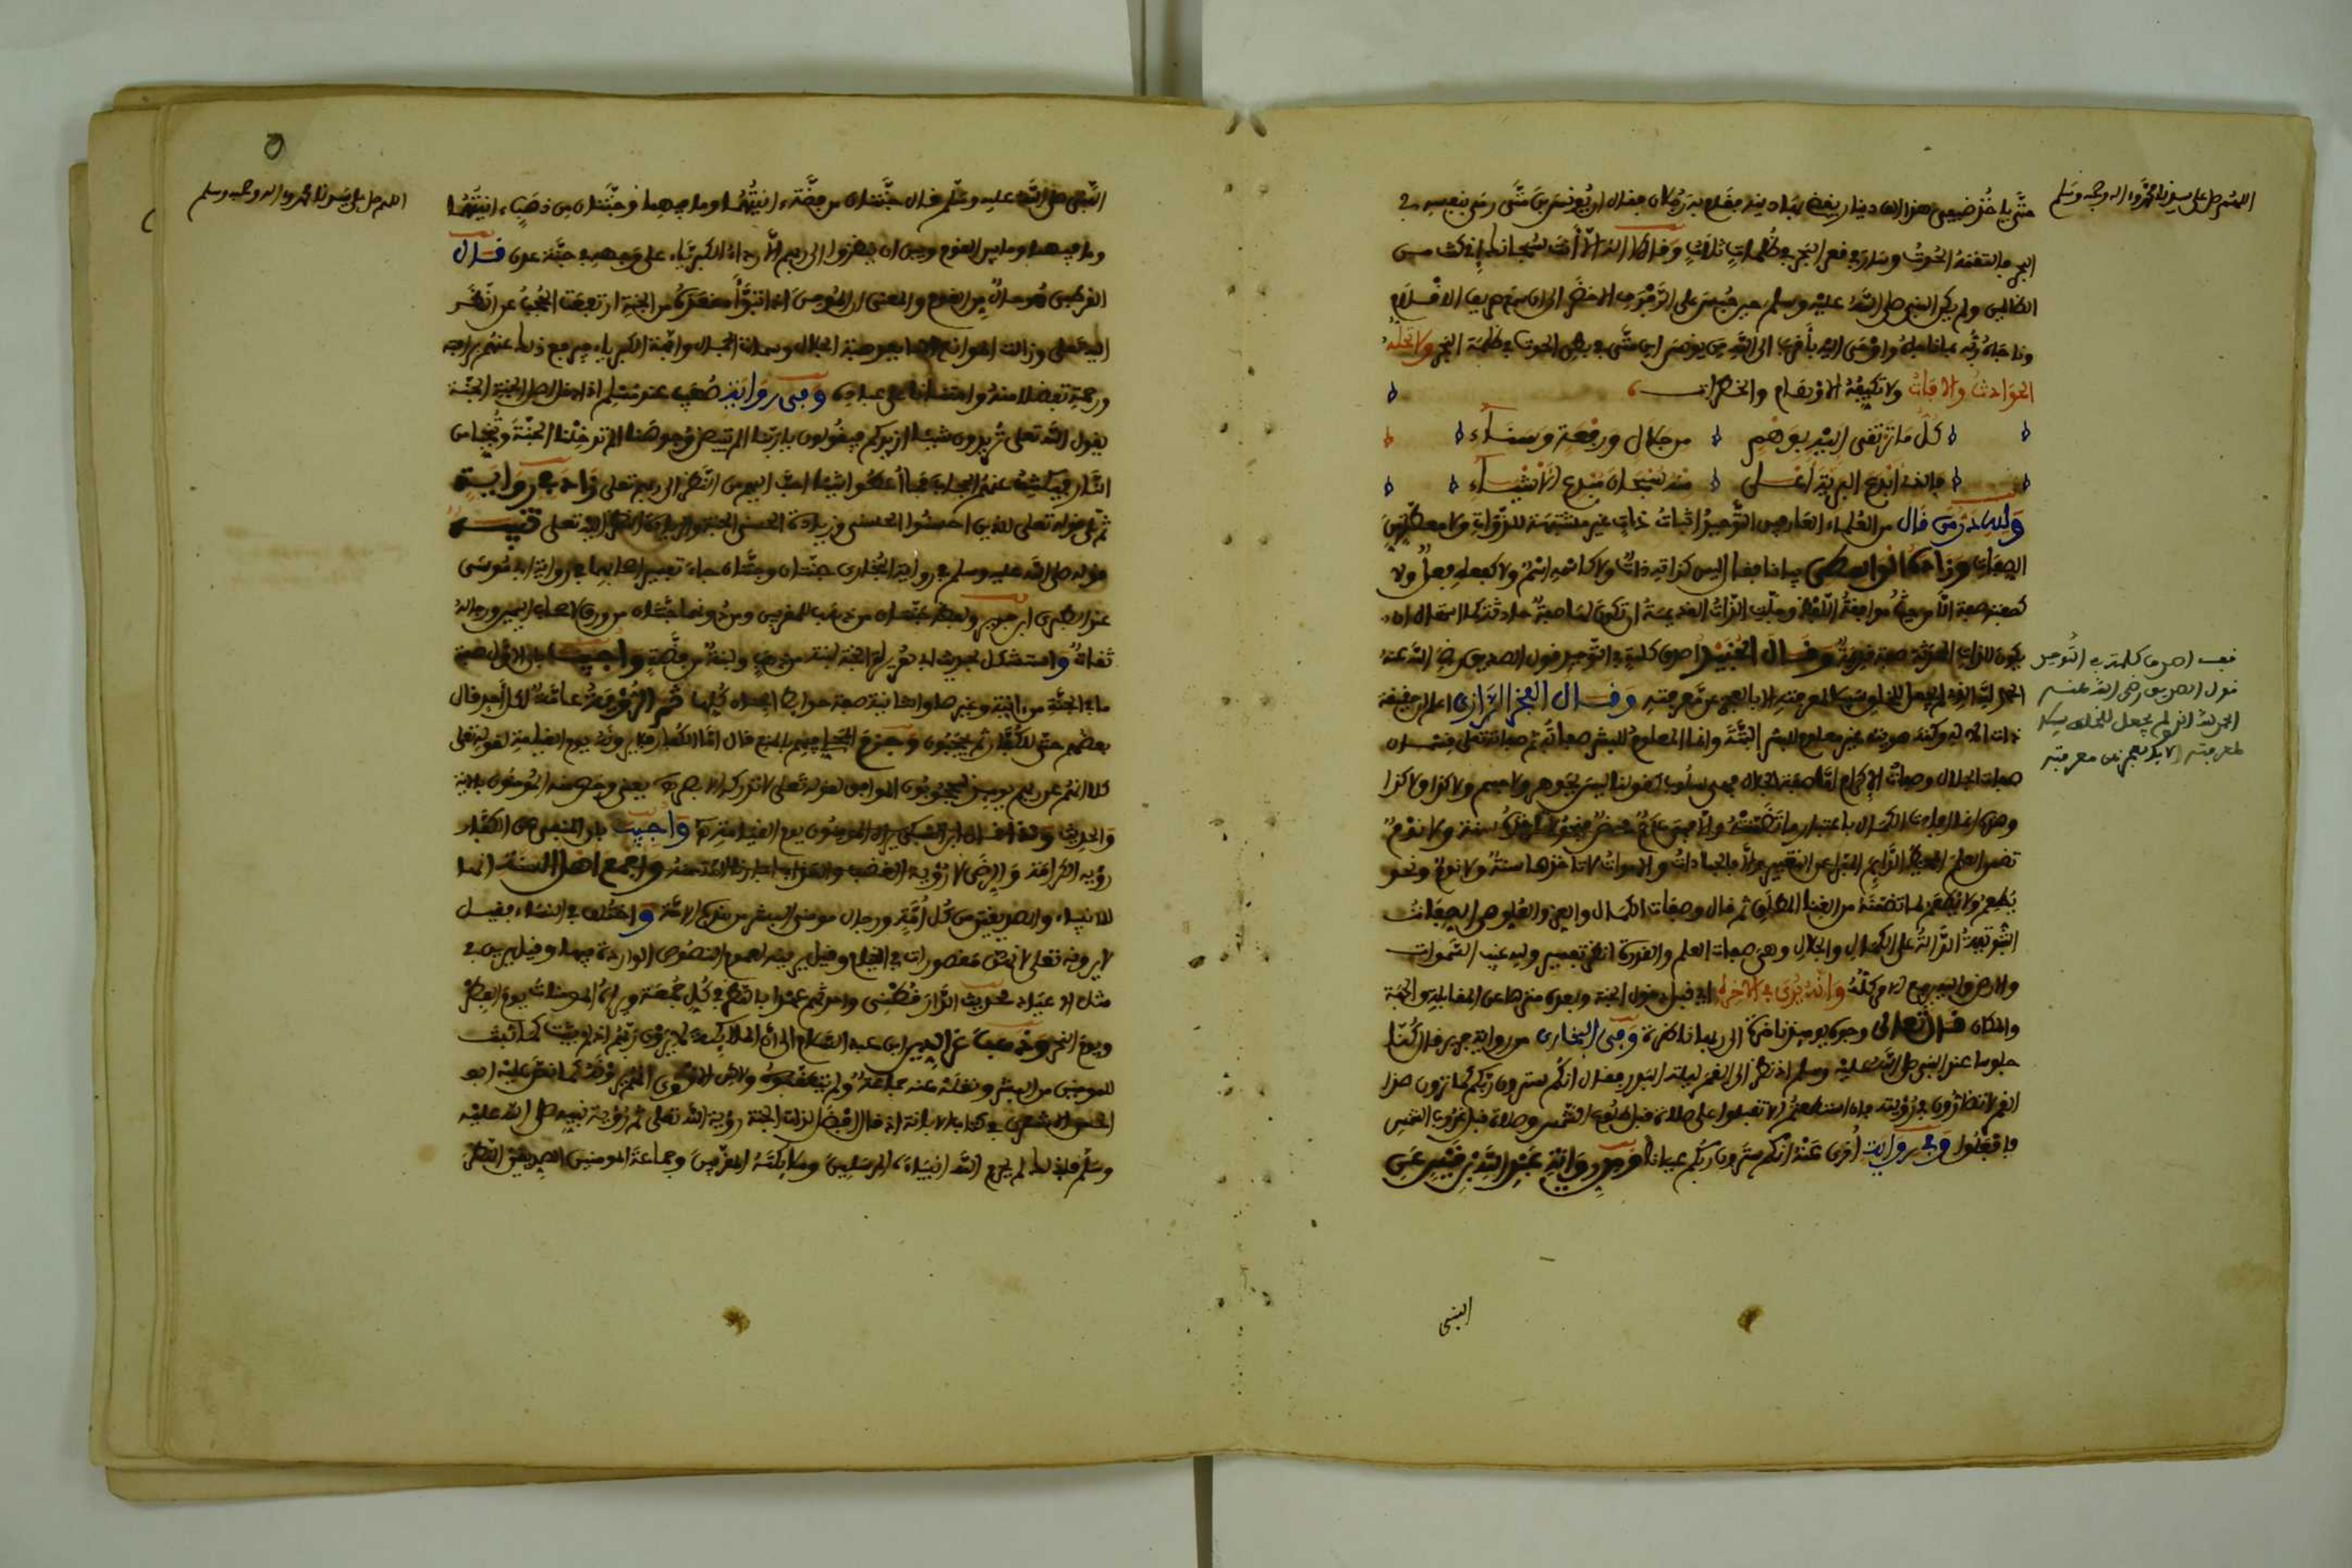 اللهم صل على سيدنا محمد وءاله وصحبه وسلم
حتى ياخذ ضيفى هذا الف دينار يقضى بها دينه فقام به رجلان فقال ان يونس بن متى رمى بنفسه في
البحر فالتقمه الحوت وصار في قعر البحر في ظلمات ثلاث وقال لا اله الا انت سبحانك انى كنت من
الظالمين ولم يكن النبى صلى الله عليه وسلم حين جلس على الرفرف الاخضر الى ان سمع صريف الاقلام
وناجاه ربه بما ناجاه واوحى اليه باقرب الى الله من يونس ابن متى في بطن الحوت في ظلمة البحر ولا تحله
الحوادث والافات ولا تكيفه الاوهام والخطرات
كل ما ترتقى اليه بوهم من جلال ورفعة وسناء
فالذى ابدع البرية اعلى منه سبحان مبدع الاشياء
ولله در من قال من العلماء العارفين التوحيد اثبات ذات غير مشبهة للذوات ولا معطلة من
الصفات وزاد الواسطى بيانا فقال ليس كذاته ذات ولا كاسمه اسم ولا كفعله فعل ولا
كصفته صفة الا من جهة موافقة اللفظ وجلت الذات القديمة ان تكون لها صفة حادثة كما استحال ان
يكون للذات المحدثة صفة قديمة وقال الجنيد اشرف كلمة في التوحيد قول الصديق رضى الله عنه
الحمد لله الذى لم يجعل للخلق سبيلا لمعرفته الا بالعجز عن معرفته وقال الفخر الرازى اعلم ان حقيقة
ذات الاله وكنه هويته غير معلوم للبشر البتة وانما المعلوم للبشر صفاته ثم صفاته تعلى قسمان
صفات الجلال وصفات الاكرام اما صفة الجلال فهى سلوب كقولنا ليس بجوهر ولا جسم ولا كذا ولا كذا
وهى انما افادت الكمال باعتبار ما تضمنته والا فهى عدم محض فنحو لا تاخذه سنة ولا نوم
تضمن العلم المحيط الدايم المبرا عن التغيير والا فالجمادات والاموات لا تاخذها سنة ولا نوم ونحو
يطعم ولا يطعم لما تضمنه من الغنا المطلق ثم قال وصفات الكمال والعز والعلو هى الصفات
الثبوتية الدالة على الكمال والجلال وهى صفات العلم والقدرة انظر تفسير ولله غيب السموات
والارض واليه يرجع الامر كله وانه يرى في الاخرة اى قبل دخول الجنة وبعده منزها عن المقابلة والجهة
والمكان قال تعالى وجوه يومئذ ناضرة الى ربها ناظرة وفى البخارى من رواية جرير قال كنا
جلوسا عند النبى صلى الله عليه وسلم اذ نظر الى القمر ليلة البدر فقال انكم سترون ربكم كما ترون هذا
القمر لا تضامون في رؤيته فان استطعتم ان لا تغلبوا على صلاة قبل طلوع الشمس وصلاة قبل غروب الشمس
فافعلوا وفى رواية اخرى عنه انكم سترون ربكم عيانا وفى رواية عبد الله بن قيس عن
النبى
فف اشرف كلمة في التوحيد
قول الصديق رضى الله عنه
الحمد لله الذى لم يجعل للخلق سبيلا
لمعرفته الا بالعجز عن معرفته
اللهم صل على سيدنا محمد وءاله وصحبه وسلم
النبى صلى الله عليه وسلم قال جنتان من فضة ءانيتهما وما فيهما وجنتان من ذهب ءانيتهما
وما فيهما وما بين القوم وبين ان ينظروا الى ربهم الا رداء الكبرياء على وجهه في جنة عدن قال
القرطبى هو حال من القوم والمعنى ان المومن اذا تبوا مقعده من الجنة ارتفعت الحجب عن النظر
اليه تعلى وزالت الموانع الا ما يهيه من هيبة الجلال وسبحات الجمال وابهة الكبرياء فيرفع ذلك عنهم برافة
ورحمة تفضلا منه وامتنانا على عباده وفى رواية صهيب عند مسلم اذا دخل اهل الجنة الجنة
يقول الله تعلى تريدون شيئا ازيدكم فيقولون يا ربنا الم تبيض وجوهنا الم تدخلنا الجنة وتنجنا من
النار فيكشف عنهم الحجاب فما اعطوا شيئا احب اليهم من النظر الى ربهم تعلى زاد في رواية
ثم تلى قوله تعلى للذين احسنوا الحسنى وزيادة الحسنى الجنة والزيادة النظر اليه تعلى تنبيه
قوله صلى الله عليه وسلم في رواية البخارى جنتان وجنتان جاء تفسيرهما في رواية ابى موسى
عند الطبرى ابن جرير ولفظه جنتان من ذهب للمقربين ومن دونهما جنتان من ورق لاصحاب اليمين ورجاله
ثقات واستشكل بحديث ابى هريرة الجنة لبنة من ذهب ولبنة من فضة واجيب بان الاول صفة
ما في الجنة من ءانية وغيرها والثانية صفة حوايط الجنان كلها ثم الرؤية عامة لكل احد قال
بعضهم حتى للكفار ثم يحجبون
كلا انهم عن ربهم يومئذ لمحجوبون الموافق لقوله تعلى لا تدركه الابصار يعنى وخص منه المومنون بالاية
والحديث
رؤية الكرامة والرضى لا رؤية الغضب والعذاب واجمع اهل السنة انها
للانبياء والصديقين من كل امة ورجال مومنى البشر من هذه الامة واختلف في النساء فقيل
لا يرونه تعلى لانهن مقصورات في الخيام وقيل يرينه لعموم النصوص الواردة فيها وقيل يرين في
مثل الاعياد لحديث الدارقطنى واحدثهم عهدا بالنظر في كل جمعة ويراه المومنات يوم الفطر
ويوم النحر وذهب عز الدين ابن عبد السلام الى ان الملايكة لا يرون ربهم اذ لم يثبت كما ثبت
للمومنين من البشر ونقله عنه جماعة ولم يتعقبوه ولاكن الاقوى انهم يرونه كما نص عليه ابو
الحسن الاشعرى في كتابه الابانة اذ قال افضل لذات الجنة رؤية الله تعلى ثم رؤية نبيه صلى الله عليه
وسلم فلذلك لم يحرم الله انبياءه المرسلين وملايكته المقربين وجماعة المومنين الصديقين النظر